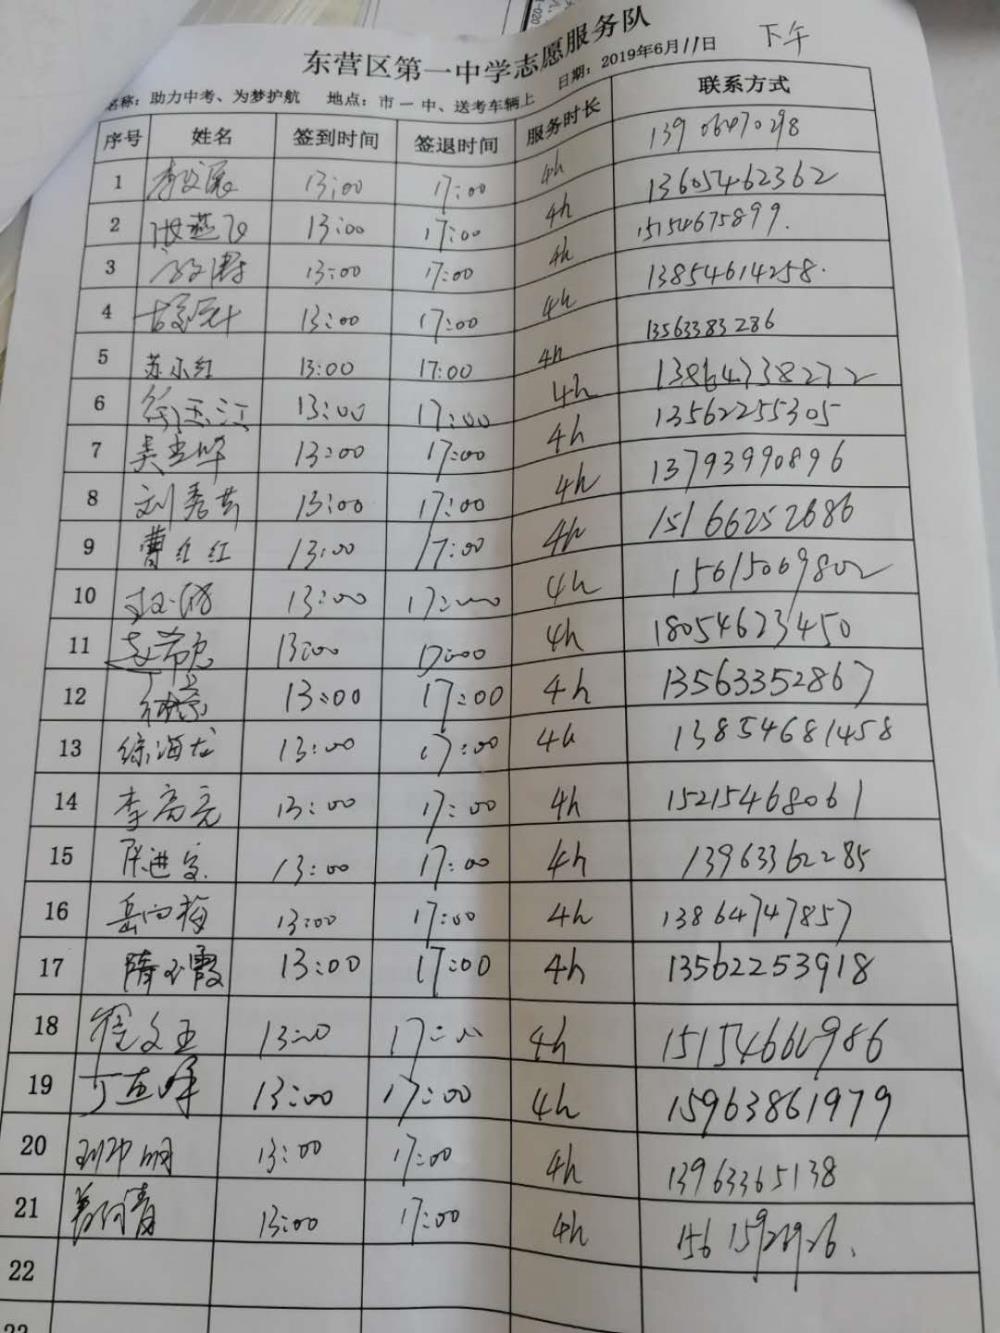 东营区第一中学志愿服务队
名称：助力中考、为梦护航 地点：市一中、送考车辆上 日期：2019年6月11日 下午
序号 姓名 签到时间 签退时间 服务时长 联系方式
1 13:00 17:00 4h
2 张燕飞 13:00 17:00 4h 13605462362
3 13:00 17:00 4h 15154675899.
4 13:00 17:00 4h 13854614258.
5 苏小红 13:00 17:00 4h 13563383286
6 徐玉江 13:00 17:00 4h 13864738272
7 13:00 17:00 4h 13562255305
8 刘秀芸 13:00 17:00 4h 13793990896
9 曹红红 13:00 17:00 4h 15166252686
10 13:00 17:00 4h 15615069802
11 13:00 17:00 4h 18054623450
12 13:00 17:00 4h 13563352867
13 徐海龙 13:00 17:00 4h 13854681458
14 李高亮 13:00 17:00 4h 15215468061
15 13:00 17:00 4h 13963362285
16 岳向梅 13:00 17:00 4h 13864747857
17 隋玉霞 13:00 17:00 4h 13562253918
18 13:00 17:00 4h 15154660986
19 丁立峰 13:00 17:00 4h 15963861979
20 13:00 17:00 4h 13963365138
21 13:00 17:00 4h
22